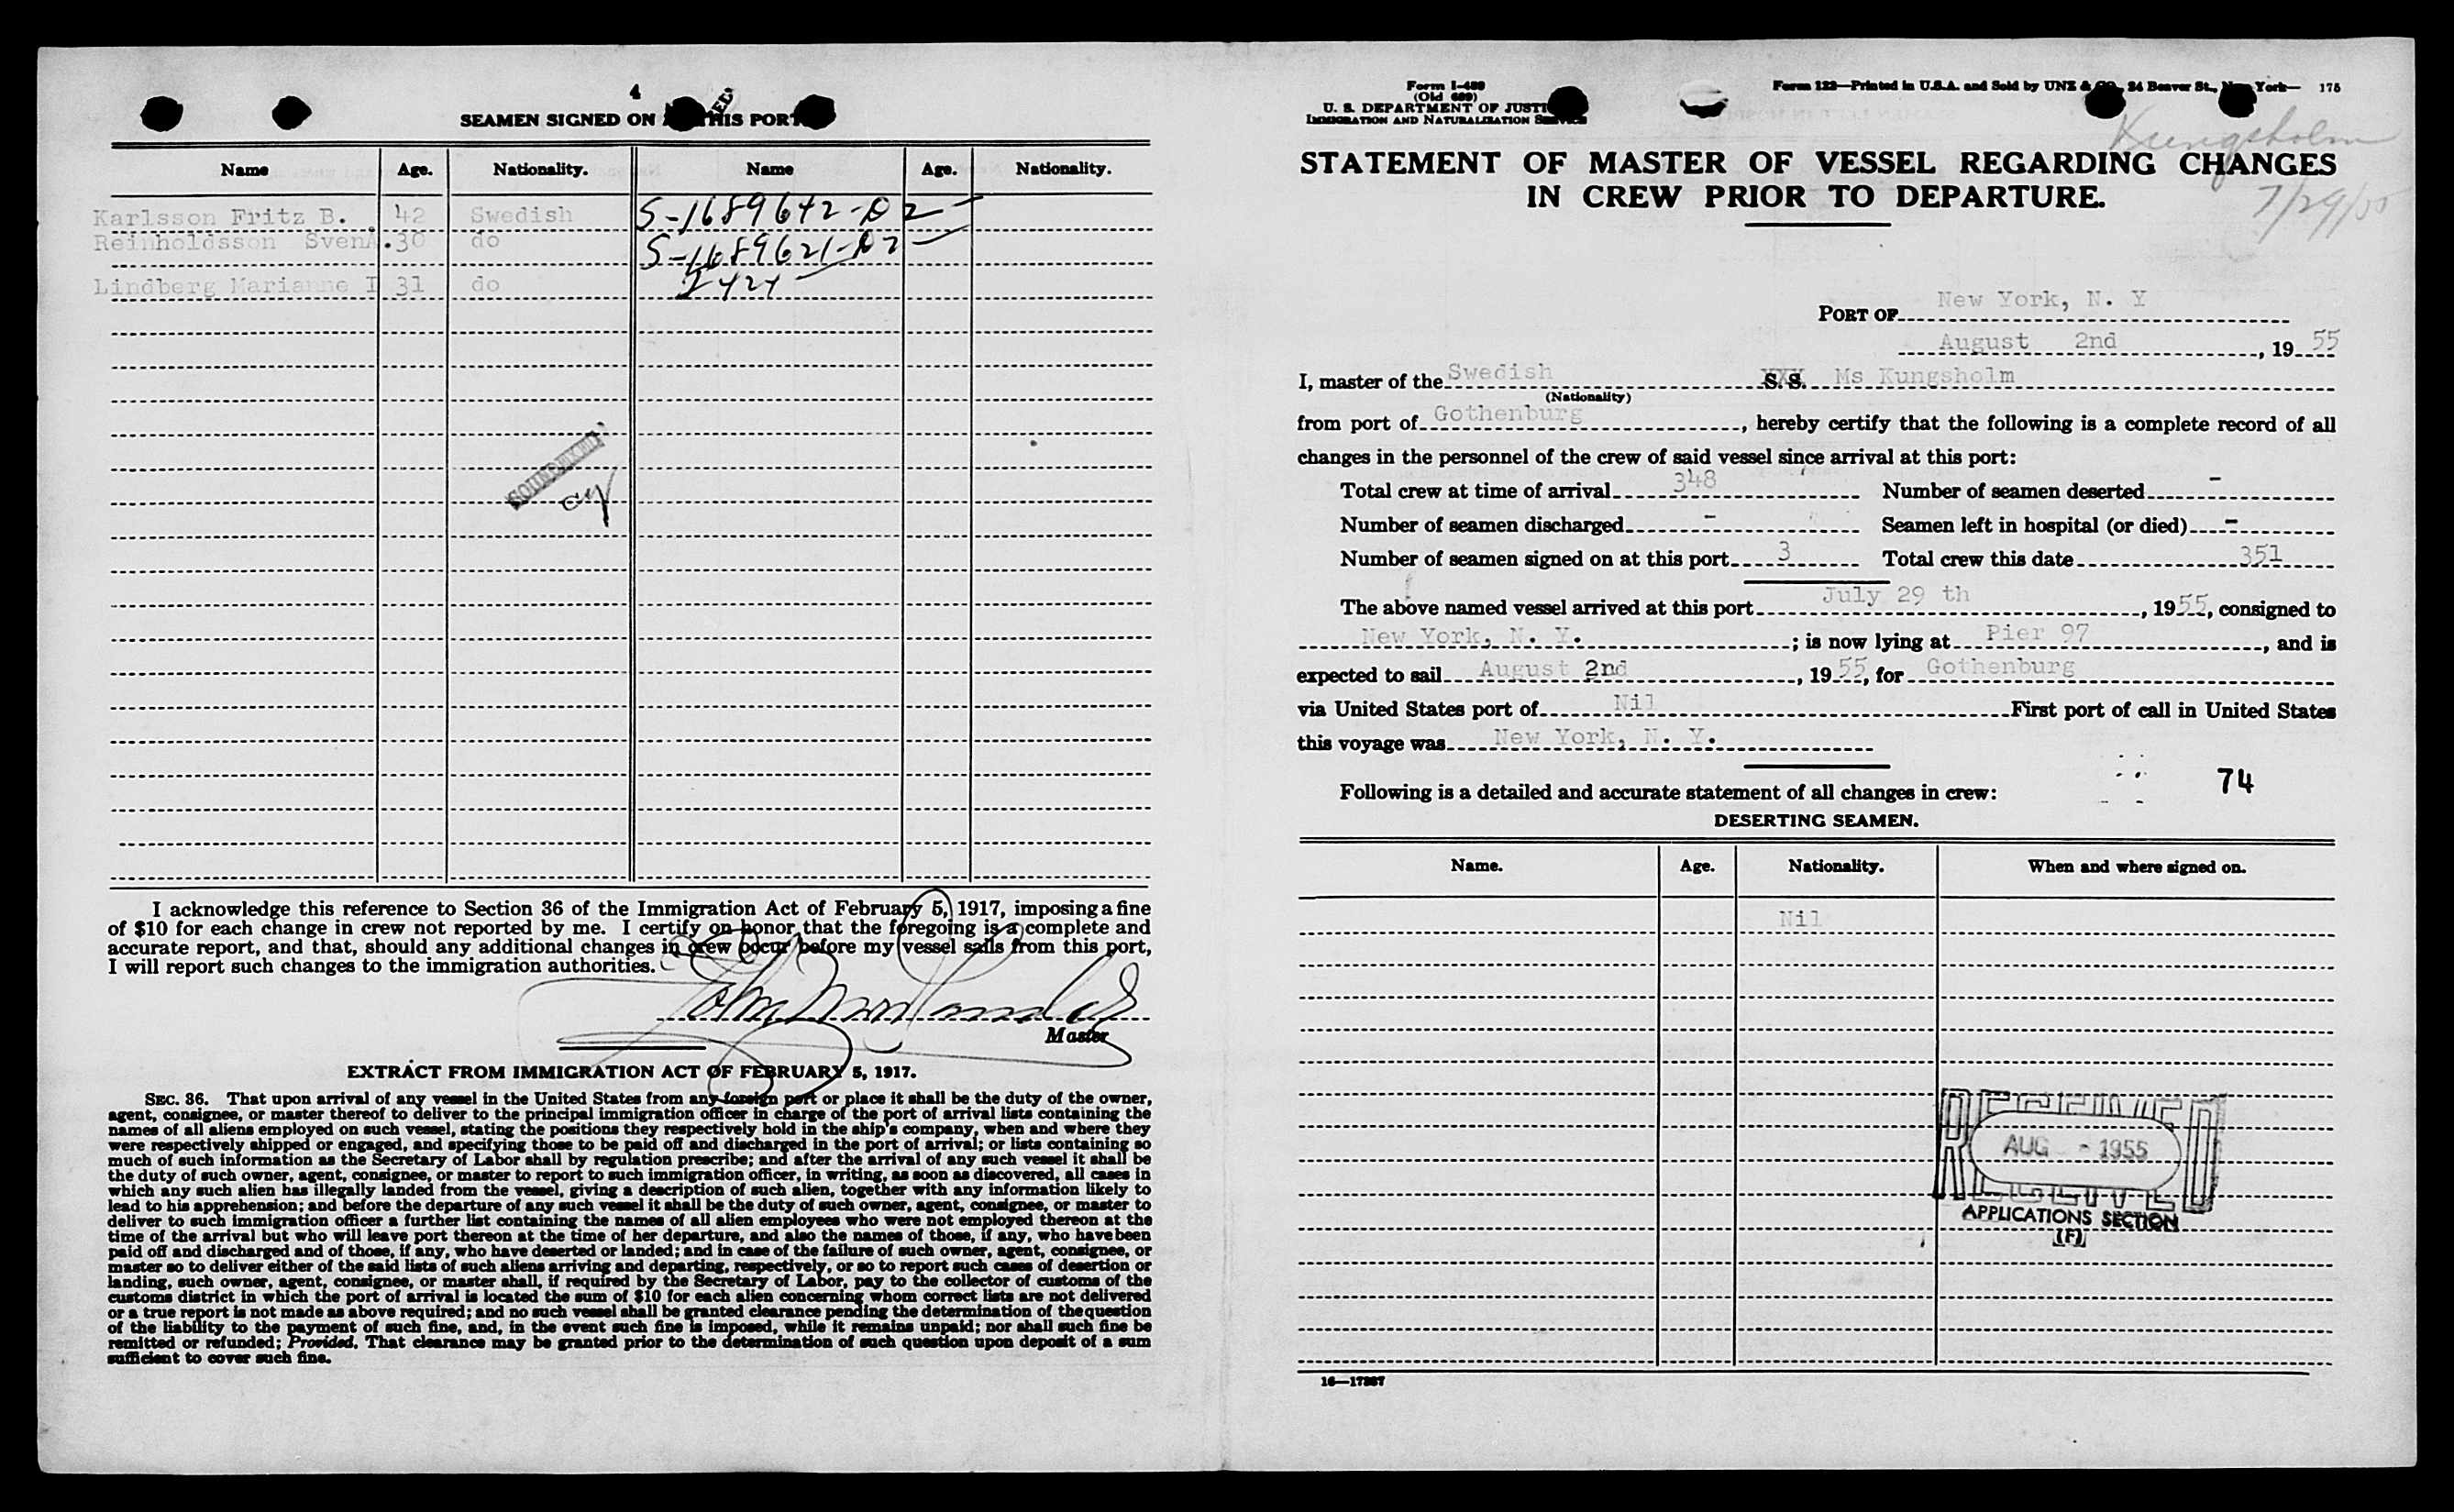 4
SEAMEN SIGNED ON THIS PORT
Name Age. Nationality. Name Age. Nationality.
Karlsson Fritz B. 42 Swedish S-1689642-D2
Reinholdsson SvenA.30 do S-1689621-D2
Lindberg Marianne I 31 do
I acknowledge this reference to Section 36 of the Immigration Act of February 5, 1917, imposing a fine
of $10 for each change in crew not reported by me. I certify on honor that the foregoing is a complete and
accurate report, and that, should any additional changes in crew occur before my vessel sails from this port,
I will report such changes to the immigration authorities.
Master
EXTRACT FROM IMMIGRATION ACT OF FEBRUARY 5, 1917.
SEC. 36. That upon arrival of any vessel in the United States from any foreign port or place it shall be the duty of the owner,
agent, consignee, or master thereof to deliver to the principal immigration officer in charge of the port of arrival lists containing the
names of all aliens employed on such vessel, stating the positions they respectively hold in the ship's company, when and where they
were respectively shipped or engaged, and specifying those to be paid off and discharged in the port of arrival; or lists containing so
much of such information as the Secretary of Labor shall by regulation prescribe; and after the arrival of any such vessel it shall be
the duty of such owner, agent, consignee, or master to report to such immigration officer, in writing, as soon as discovered, all cases in
which any such alien has illegally landed from the vessel, giving a description of such alien, together with any information likely to
lead to his apprehension; and before the departure of any such vessel it shall be the duty of such owner, agent, consignee, or master to
deliver to such immigration officer a further list containing the names of all alien employees who were not employed thereon at the
time of the arrival but who will leave port thereon at the time of her departure, and also the names of those, if any, who have been
paid off and discharged and of those, if any, who have deserted or landed; and in case of the failure of such owner, agent, consignee, or
master so to deliver either of the said lists of such aliens arriving and departing, respectively, or so to report such cases of desertion or
landing, such owner, agent, consignee, or master shall, if required by the Secretary of Labor, pay to the collector of customs of the
customs district in which the port of arrival is located the sum of $10 for each alien concerning whom correct lists are not delivered
or a true report is not made as above required; and no such vessel shall be granted clearance pending the determination of the question
of the liability to the payment of such fine, and, in the event such fine is imposed, while it remains unpaid; nor shall such fine be
remitted or refunded; Provided, That clearance may be granted prior to the determination of such question upon deposit of a sum
sufficient to cover such fine.
Form I-489
(Old 689)
U. S. DEPARTMENT OF JUSTICE
IMMIGRATION AND NATURALIZATION SERVICE
Form 122—Printed in U.S.A. and Sold by UNZ & CO., 24 Beaver St., New York— 175
Kungsholm
7/29/55
STATEMENT OF MASTER OF VESSEL REGARDING CHANGES
IN CREW PRIOR TO DEPARTURE.
PORT OF New York, N. Y
August 2nd, 1955
I, master of the Swedish S. S. Ms Kungsholm
(Nationality)
from port of Gothenburg, hereby certify that the following is a complete record of all
changes in the personnel of the crew of said vessel since arrival at this port:
Total crew at time of arrival 348 Number of seamen deserted -
Number of seamen discharged - Seamen left in hospital (or died) -
Number of seamen signed on at this port 3 Total crew this date 351
The above named vessel arrived at this port July 29 th, 1955, consigned to
New York, N. Y. ; is now lying at Pier 97, and is
expected to sail August 2nd, 1955, for Gothenburg
via United States port of Nil First port of call in United States
this voyage was New York, N. Y.
74
Following is a detailed and accurate statement of all changes in crew:
DESERTING SEAMEN.
Name. Age. Nationality. When and where signed on.
Nil
RECEIVED
AUG - 1955
APPLICATIONS SECTION
(F)
16—17387